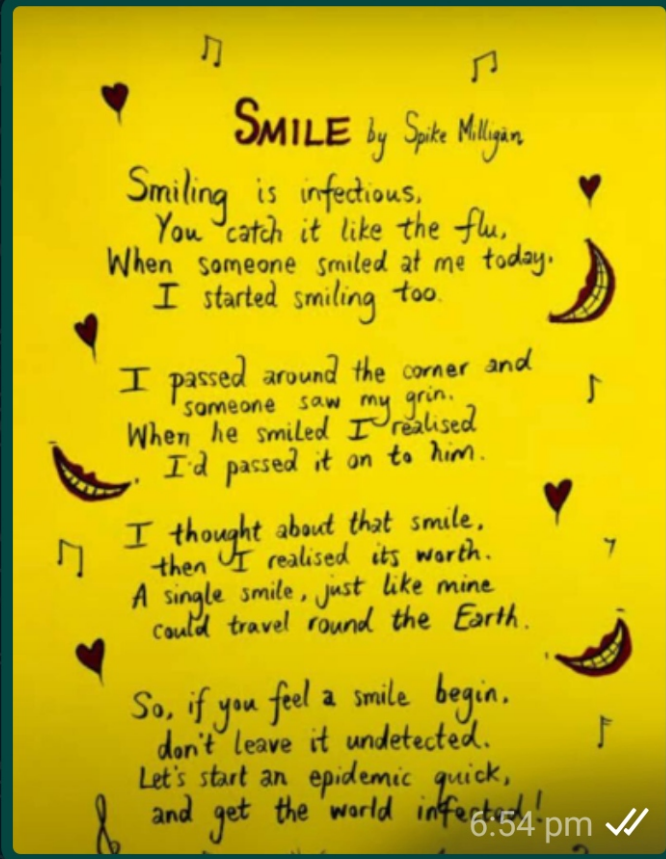 SMILE by Spike Milligan
Smiling is infectious,
You catch it like the flu,
When someone smiled at me today.
I started smiling too.
I passed around the corner and
someone saw my grin.
When he smiled I realised
I'd passed it on to him.
I thought about that smile,
then I realised its worth.
A single smile, just like mine
could travel round the Earth.
So, if you feel a smile begin,
don't leave it undetected.
Let's start an epidemic quick,
and get the world infected!
6:54 pm